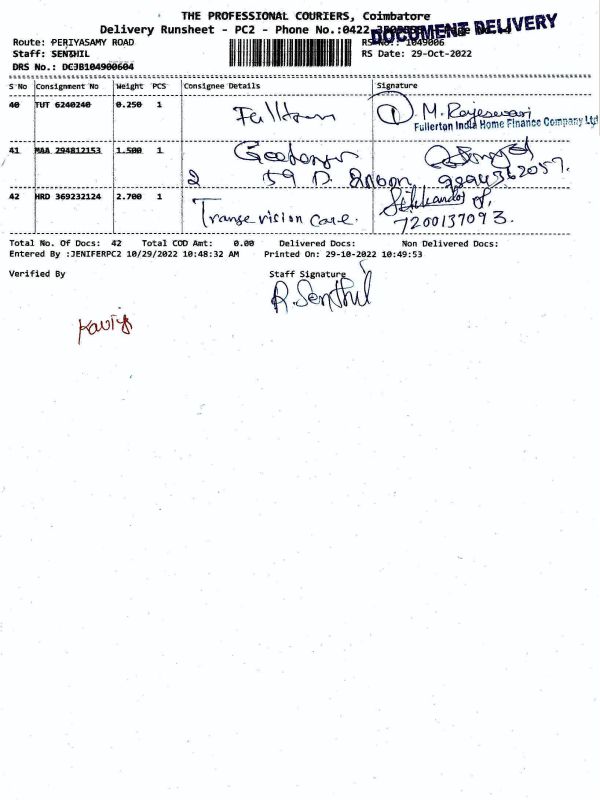 THE PROFESSIONAL COURIERS, Coimbatore
Delivery Runsheet - PC2 - Phone No.:0422
DOCUMENT DELIVERY
Route: PERIYASAMY ROAD
RS No.: 1049006
Staff: SENTHIL
RS Date: 29-Oct-2022
DRS No.: DC3B104900604
S No Consignment No Weight PCS Consignee Details Signature
40 TUT 6240240 0.250 1 M. Rajeswari
Fullerton India Home Finance Company Ltd
41 MAA 294812153 1.500 1
2 59 D.
42 HRD 369232124 2.700 1
Transe vision Care. 7200137093.
Total No. Of Docs: 42 Total COD Amt: 0.00 Delivered Docs: Non Delivered Docs:
Entered By :JENIFERPC2 10/29/2022 10:48:32 AM Printed On: 29-10-2022 10:49:53
Verified By Staff Signature
R. Senthil